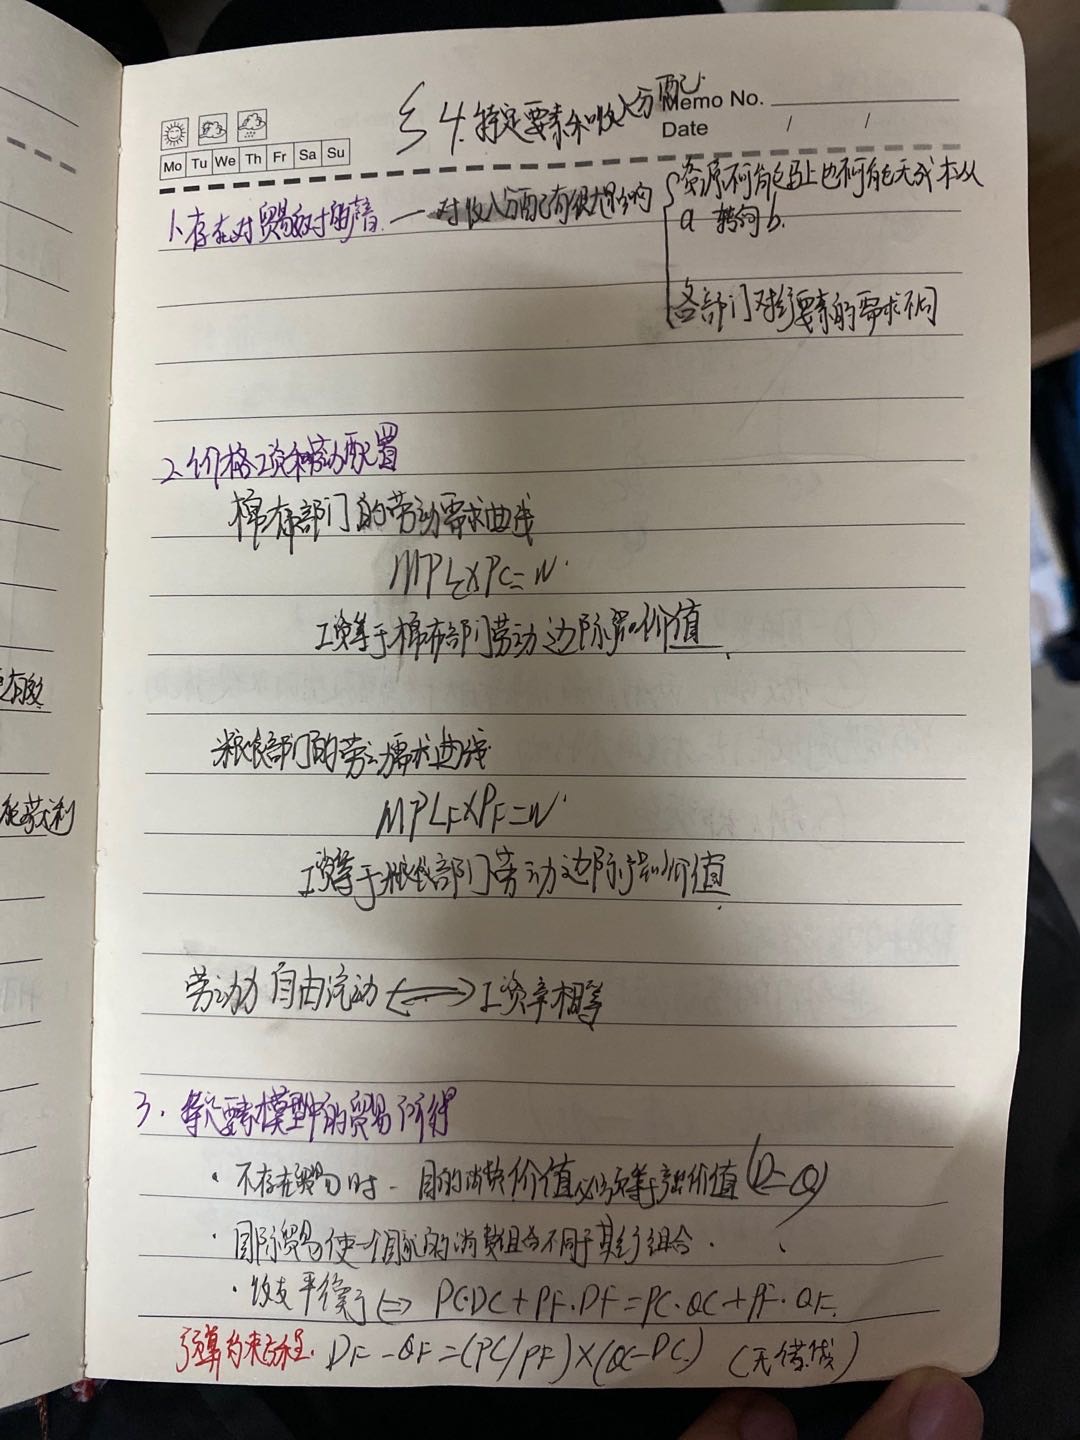 §4.特定要素和收入分配
Memo No.
Date / /
Mo Tu We Th Fr Sa Su
1.存在对贸易反对的声音. — 对收入分配有很大影响
资源不可能马上也不可能无成本从
a 转向 b.
各部门对生产要素的需求不同
2.价格工资和劳动配置
棉布部门的劳动需求曲线
MPLC×PC=W
工资等于棉布部门劳动边际产品价值.
粮食部门的劳动需求曲线
MPLF×PF=W
工资等于粮食部门劳动边际产品价值.
劳动力自由流动 ⟺ 工资率相等
3.特定要素模型中的贸易所得
· 不存在贸易时一国的消费价值必须等于产出价值 (D=Q)
· 国际贸易使一个国家的消费组合不同于其生产组合.
· 收支平衡 ⇔ PC·DC+PF·DF=PC·QC+PF·QF.
预算约束方程. DF-QF=(PC/PF)×(QC-DC) (无借贷)
能获利